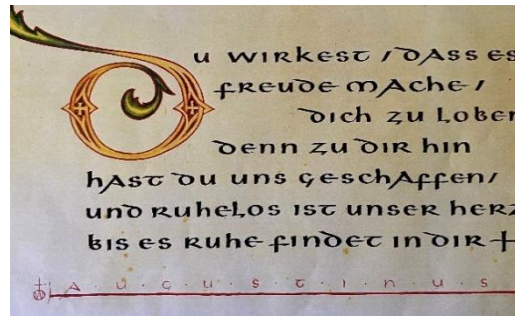 Du wirkest / dass es
freude mache /
dich zu loben
denn zu dir hin
hast du uns geschaffen /
und ruhelos ist unser herz
bis es ruhe findet in dir +
A·u·g·u·s·t·i·n·u·s